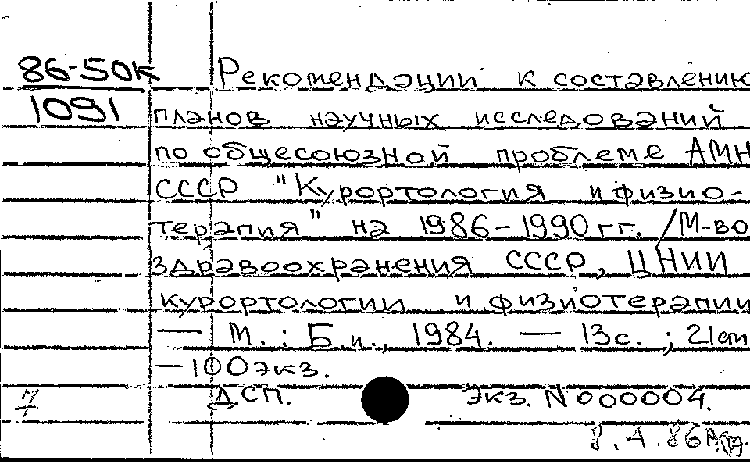 86-50К Рекомендации к составлению
1091 планов научных исследований
по общесоюзной проблеме АМН
СССР "Курортология и физио-
терапия" на 1986-1990 гг. / М-во
здравоохранения СССР, ЦНИИ
курортологии и физиотерапии
— М. : Б.и., 1984. — 13с. ; 21см
— 100экз.
ДСП. Экз. N 000004.
8.4.86